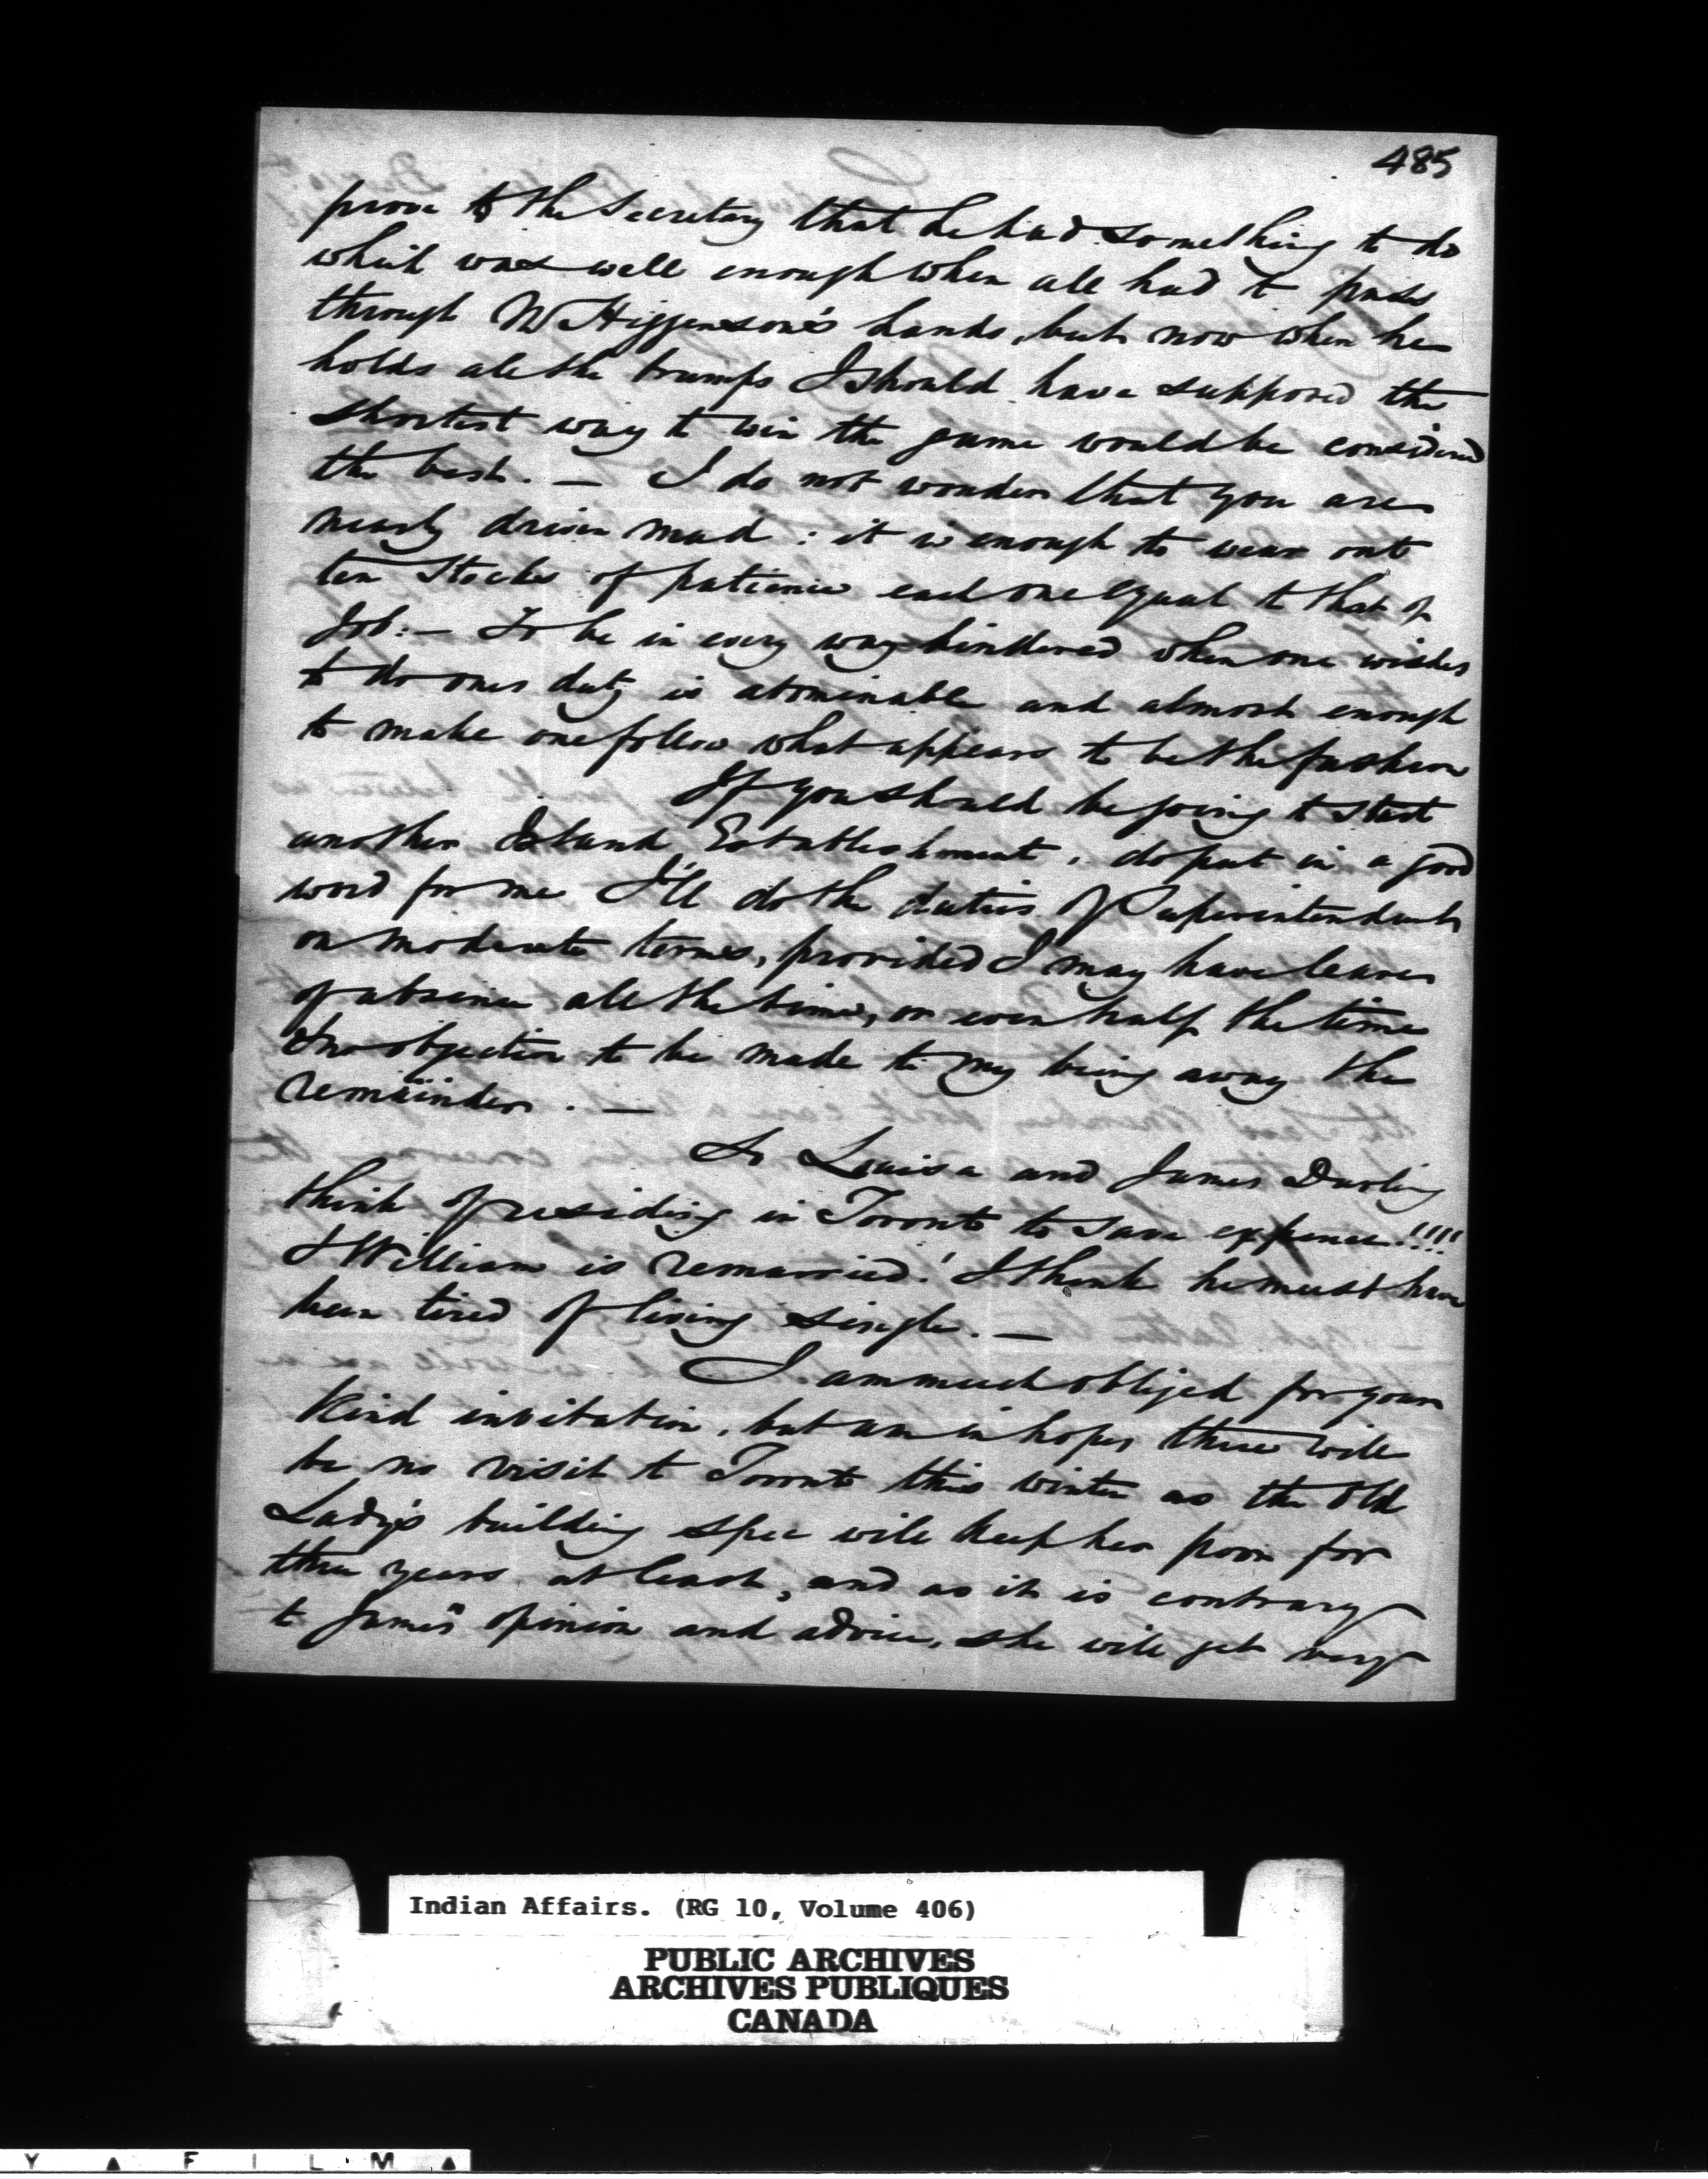 485
prove to the Secretary that he had something to do
which was well enough when all had to pass
through Mr Higginson's hands, but now when he
holds all the trumps I should have supposed the
shortest way to win the game would be considered
the best. — I do not wonder that you are
nearly driven mad: it is enough to wear out
ten Stocks of patience each one equal to that of
Job: — To be in every way hindered when one wishes
to do ones duty is abominable and almost enough
to make one follow what appears to be the fashion
If you should be going to start
another Island Establishment, do put in a good
word for me I'll do the duties of Superintendent
on moderate terms, provided I may have leave
of absence all the time, or even half the time
& no objection to be made to my being away the
remainder. —
So Louisa and James Darling
think of residing in Toronto to save expense!!!!
& William is remarried! I think he must have
been tired of living single. —
I am much obliged for your
kind invitation, but am in hopes there will
be no visit to Toronto this winter as the Old
Lady's building spec will keep her poor for
three years at least, and as it is contrary
to James' opinion and advice, she will get very
Indian Affairs. (RG 10, Volume 406)
PUBLIC ARCHIVES
ARCHIVES PUBLIQUES
CANADA
Y ▲ F I L M ▲